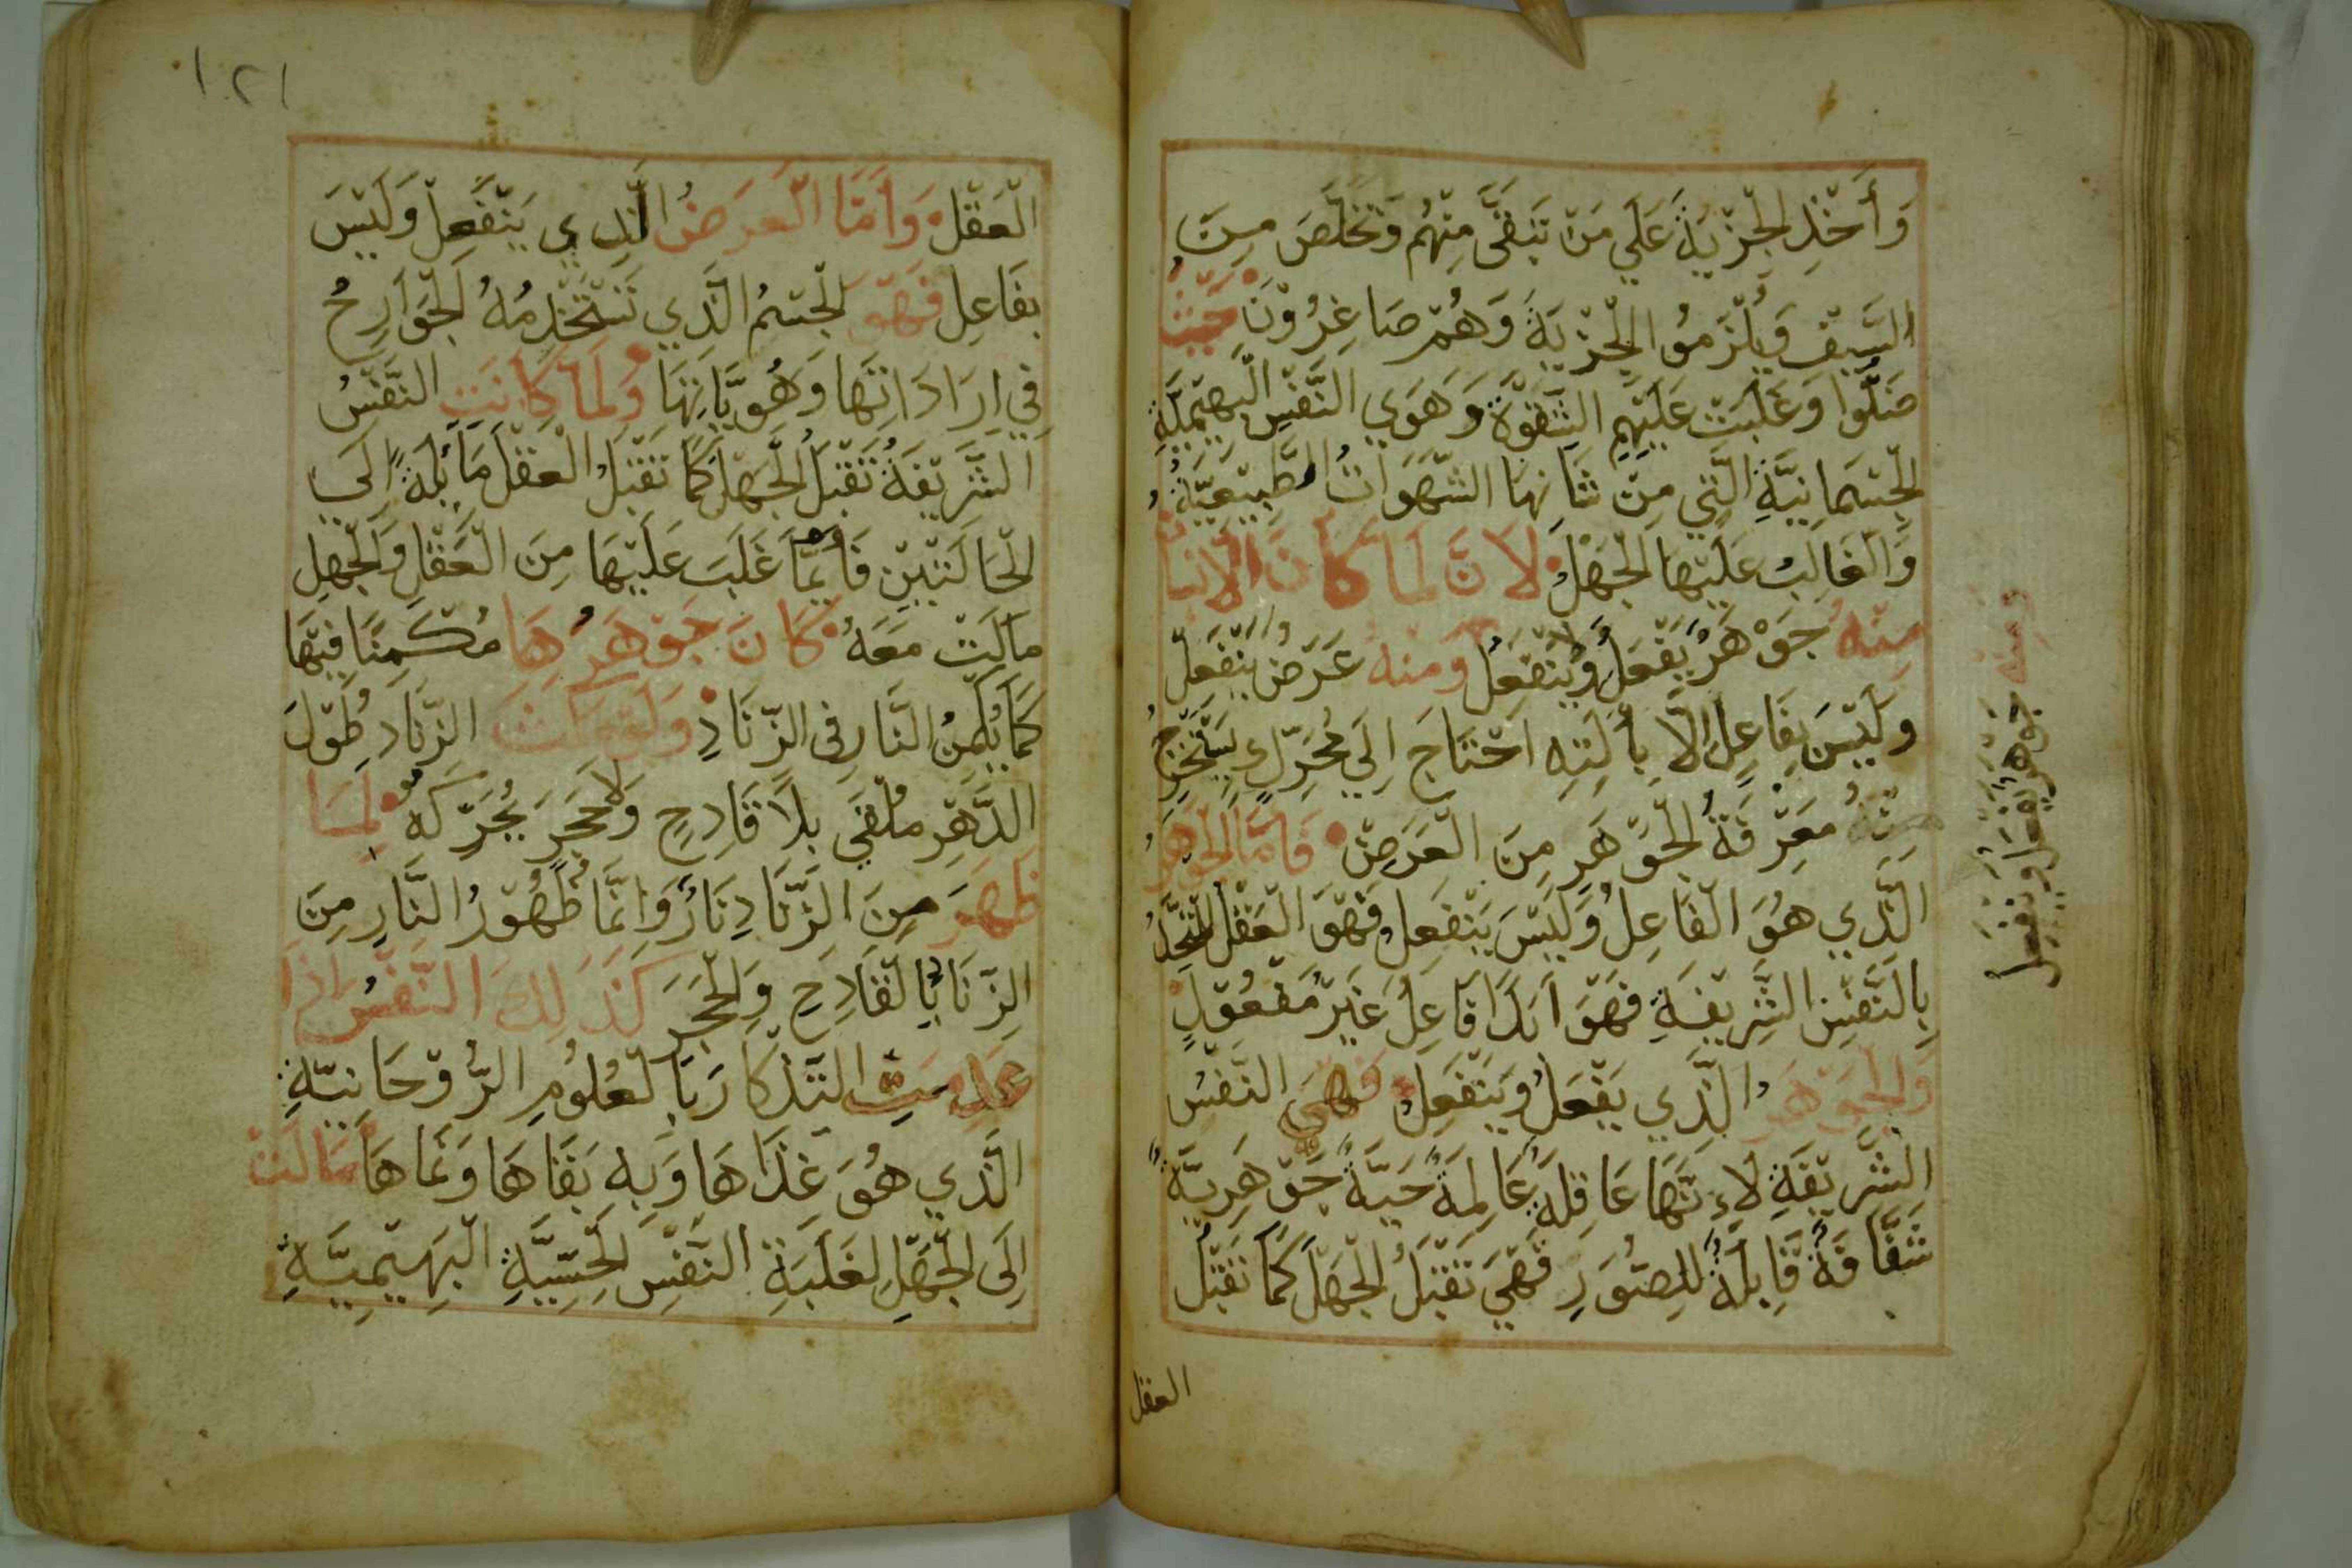 وَأَخْذِ الْجِزْيَةِ عَلَي مَنْ تَبَقَّى مِنْهُم وَتَخَلَّصَ مِنَ
السَّيْفِ وَيُلْزَمُوا الْجِزْيَةَ وَهُمْ صَاغِرُوْنَ حَيْثُ
ضَلُّوا وَغَلَبَتْ عَلَيْهِمِ الشَّقْوَةُ وَهَوَي النَّفْسِ الْبَهِيْمِيَّةِ
الْجِسْمَانِيَّةِ الَّتِي مِنْ شَانِهَا الشَّهَوَاتُ الطَّبِيْعِيَّةُ
وَالْغَالِبُ عَلَيْهَا الْجَهْلُ لاَنَّ لَمَا كَانَ الْاِنْسَا
مِنْهُ جَوْهَرٌ يَفْعَلُ وَلَا يَنْفَعِلُ وَمِنْهُ عَرَضٌ يَنْفَعِلُ
وَلَيْسَ بِفَاعِلٍ اِلَّا بِأَلَتِهِ احْتَاجَ اِلَي مُحَرِّكٍ يَسْتَخْرِجُ
مِنْهُ مَعْرِفَةَ الْجَوْهَرِ مِنَ الْعَرَضِ فَامَّا الْجَوْهَرُ
الَّذِي هُوَ الْفَاعِلُ وَلَيْسَ يَنْفَعِلُ فَهْوَ الْعَقْلُ الْمُتَّحِدُ
بِالنَّفْسِ الشَّرِيْفَةِ فَهْوَ اَبَدًا فَاعِلٌ غَيْرُ مَفْعُوْلٍ
وَالْجَوْهَرُ الَّذِي يَفْعَلُ وَيَنْفَعِلُ فَهْيَ النَّفْسُ
الشَّرِيْفَةِ لِاَنَّهَا عَاقِلَةٌ عَالِمَةٌ حَيَّةٌ جَوْهَرِيَّةٌ
شَفَّافَةٌ قَابِلَةٌ لِلصُّوَرِ فَهْيَ تَقْبَلُ الْجَهْلَ كَمَا تَقْبَلُ
العقل
وَمِنْهُ جَوْهَرٌ يَفْعَلُ وَيَنْفَعِلُ
١٠٢١
الْعَقْلَ وَاَمَّا الْعَرَضُ الَّذِي يَنْفَعِلُ وَلَيْسَ
بِفَاعِلٍ فَهْوَ الْجِسْمُ الَّذِي تَسْتَخْدِمُهُ الْجَوَارِحُ
فِي اِرَادَاتِهَا وَهُوِيَّاتِهَا وَلَمَّا كَانَتِ النَّفْسُ
الشَّرِيْفَةُ تَقْبَلُ الْجَهْلَ كَمَا تَقْبَلُ الْعَقْلَ مَائِلَةً اِلَي
الْحَالَتَيْنِ فَأَيُّمَا غَلَبَ عَلَيْهَا مِنَ الْعَقْلِ وَالْجَهْلِ
مَالَتْ مَعَهُ كَانَ جَوْهَرُهَا مُكْمِنًا فِيْهَا
كَمَا يُكْمِنُ النَّارِ فِي الزِّنَادِ وَلَوْ مَكَثَ الزِّنَادِ طُوْلَ
الدَّهْرِ مُلْقَي بِلَا قَادِحٍ وَلَا حَجَرٍ يُحَرِّكُهُ لَمَا
ظَهَرَ مِنَ الزِّنَادِ نَارٌ وَاِنَّمَا ظُهُوْرُ النَّارِ مِنَ
الزِّنَادِ بِالْقَادِحِ وَالْحَجَرِ كَذَلِكَ النَّفْسُ اِذَا
عَدِمَتِ التَّذْكَارَ بَا لْعُلُوْمِ الرُّوْحَانِيَّةِ
الَّذِي هُوَ غِذَاهَا وَبِهِ بَقَاهَا وَنَمَاهَا مَالَتْ
اِلَى الْجَهْلِ لِغَلَبَةِ النَّفْسِ الْحِسِّيَّةِ الْبَهِيْمِيَّةِ